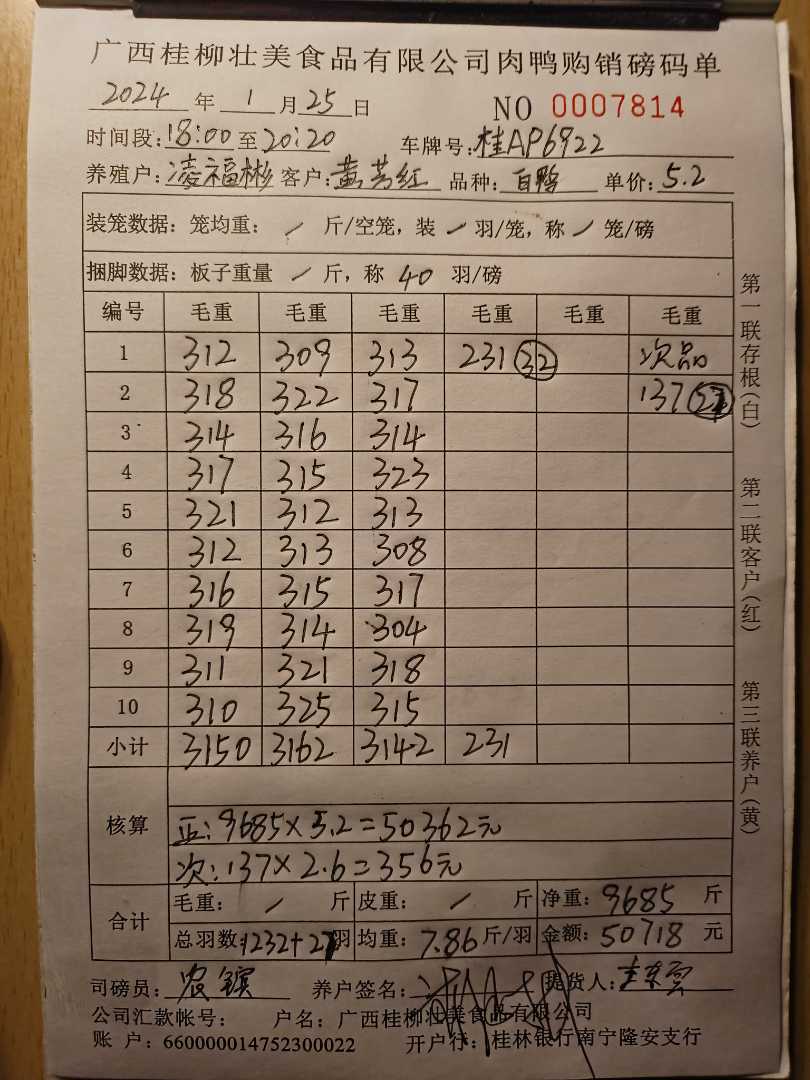 广西桂柳壮美食品有限公司肉鸭购销磅码单
2024 年 1 月 25 日 NO 0007814
时间段: 18:00 至 20:20 车牌号: 桂AP6922
养殖户: 凌福彬 客户: 黄芳红 品种: 白鸭 单价: 5.2
装笼数据: 笼均重: / 斤/空笼, 装 / 羽/笼, 称 / 笼/磅
捆脚数据: 板子重量 / 斤, 称 40 羽/磅
编号 毛重 毛重 毛重 毛重 毛重 毛重
1 312 309 313 231 32 次品
2 318 322 317 137 27
3 314 316 314
4 317 315 323
5 321 312 313
6 312 313 308
7 316 315 317
8 319 314 304
9 311 321 318
10 310 325 315
小计 3150 3162 3142 231
核算
正: 9685×5.2=50362元
次: 137×2.6=356元
合计
毛重: / 斤 皮重: / 斤 净重: 9685 斤
总羽数: 1232+27 羽 均重: 7.86 斤/羽 金额: 50718 元
司磅员: 农镔 养户签名: 提货人:
公司汇款帐号: 户名: 广西桂柳壮美食品有限公司
账 户: 660000014752300022 开户行: 桂林银行南宁隆安支行
第一联存根(白)
第二联客户(红)
第三联养户(黄)